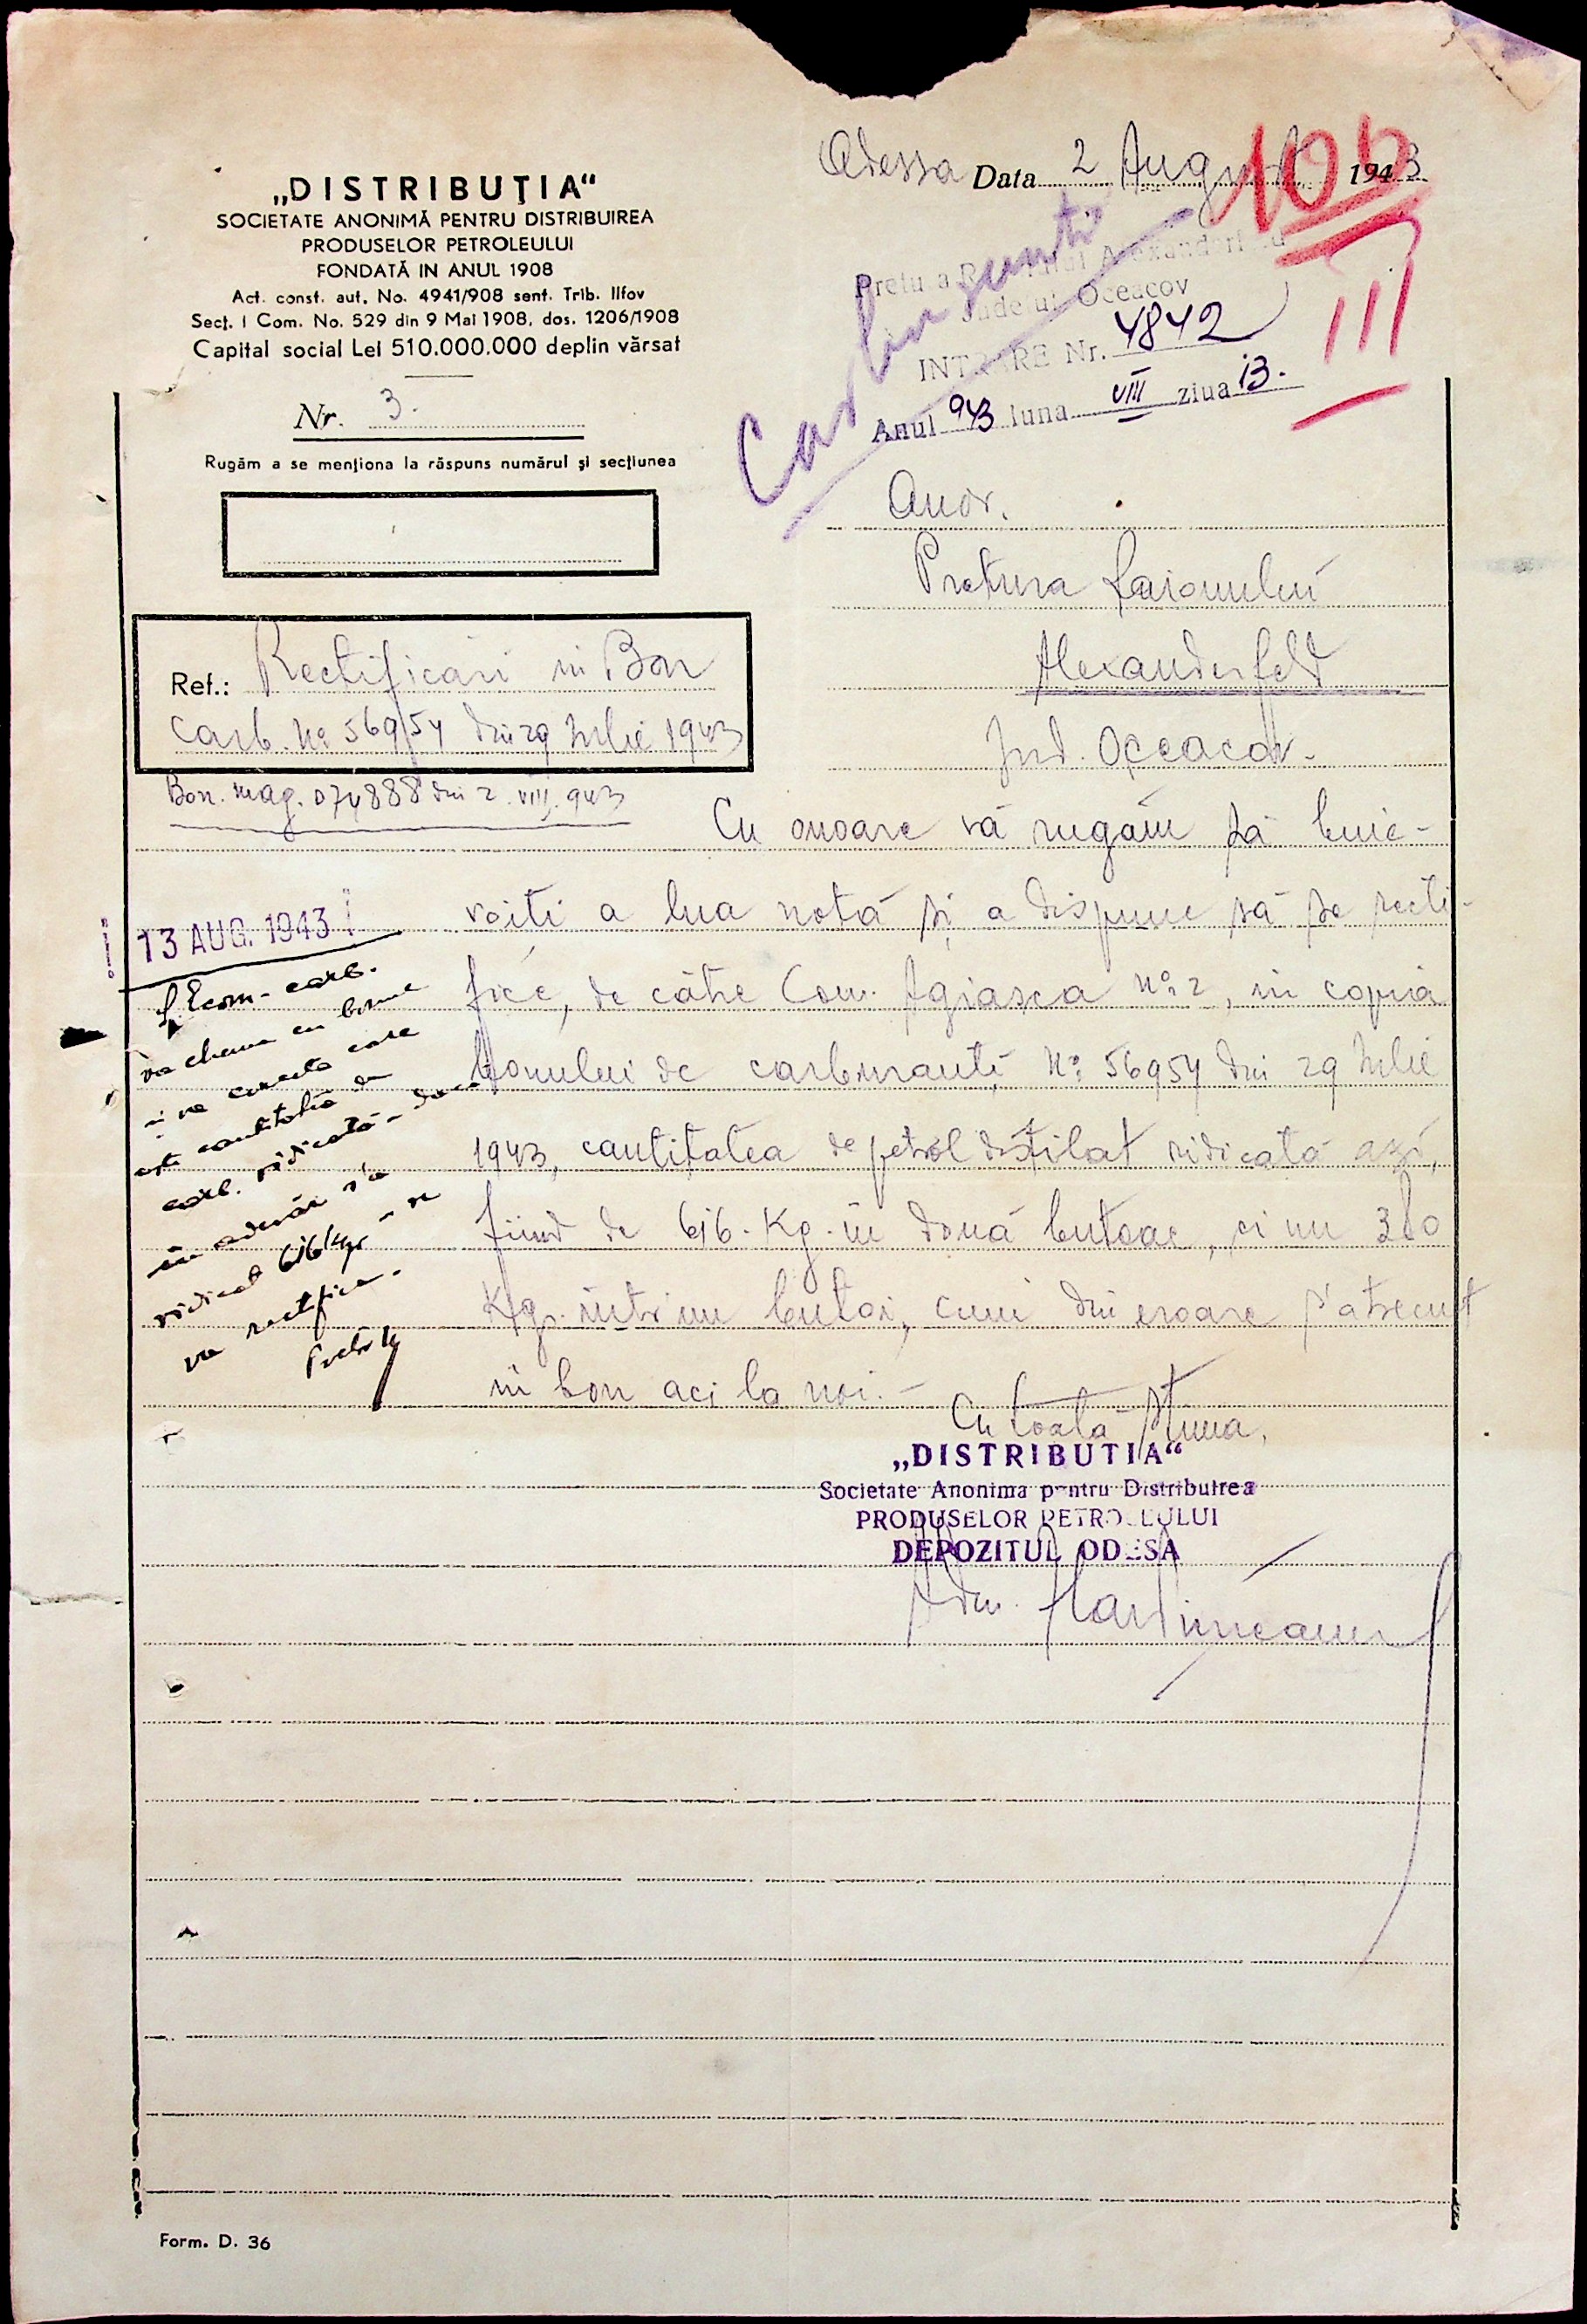 „DISTRIBUŢIA“
SOCIETATE ANONIMĂ PENTRU DISTRIBUIREA
PRODUSELOR PETROLEULUI
FONDATĂ IN ANUL 1908
Act. const. aut. No. 4941/908 sent. Trib. Ilfov
Secţ. I Com. No. 529 din 9 Mai 1908, dos. 1206/1908
Capital social Lei 510.000.000 deplin vărsat
Nr. 3.
Rugăm a se menţiona la răspuns numărul şi secţiunea
Odessa Data 2 August 1943
106
III
Carburanti
Judetul Oceacov
INTRARE Nr. 4842
Anul 943 luna VIII ziua 13.
Onor.
Pretura Raionului
Alexanderfeld
Jud. Oceacov.
Ref.: Rectificări in Bon
Carb. No 56954 din 29 Iulie 1943
Bon. mag. 074888 din 2. VIII. 943
Cu onoare vă rugăm să bine-
voiti a lua notă și a dispune să se recti-
fice, de către Com. Agiasca No 2, in copia
bonului de carburanti No 56954 din 29 Iulie
1943, cantitatea de petrol distilat ridicată azi,
fiind de 616. Kg. in două butoae, si nu 380
Kgr. intr'un butoi, cum din eroare s'a trecut
in bon aci la noi. -
Cu toată stima,
„DISTRIBUTIA“
Societate Anonima pentru Distribuirea
PRODUSELOR PETROLEULUI
DEPOZITUL ODESA
Adm.
13 AUG. 1943
Econ. carb.
va chema cu bonul
si va constata care
este cantitatea de
carb. ridicată - dacă
in adevăr s'a
ridicat 616 kgr - se
va rectifica.
Form. D. 36